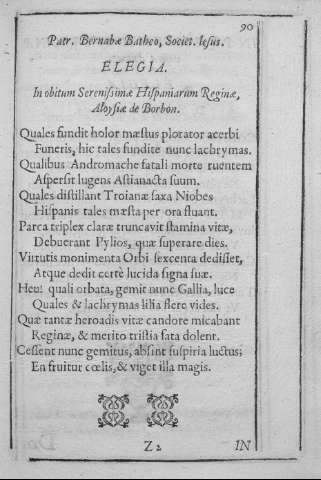 90
Patr. Bernabæ Batheo, Societ. Iesus.
ELEGIA.
In obitum Serenissimæ Hispaniarum Reginæ,
Aloysiæ de Borbon.
Quales fundit holor mæstus plorator acerbi
Funeris, hic tales fundite nunc lachrymas.
Qualibus Andromache fatali morte ruentem
Aspersit lugens Astianacta suum.
Quales distillant Troianæ saxa Niobes
Hispanis tales mæsta per ora fluant.
Parca triplex claræ truncavit stamina vitæ,
Debuerant Pylios, quæ superare dies.
Virtutis monimenta Orbi sexcenta dedisset,
Atque dedit certè lucida signa suæ.
Heu! quali orbata, gemit nunc Gallia, luce
Quales & lachrymas lilia flere vides.
Quæ tantæ heroadis vitæ candore micabant
Reginæ, & merito tristia fata dolent.
Cessent nunc gemitus, absint suspiria luctus;
En fruitur cœlis, & viget illa magis.
Z2
IN